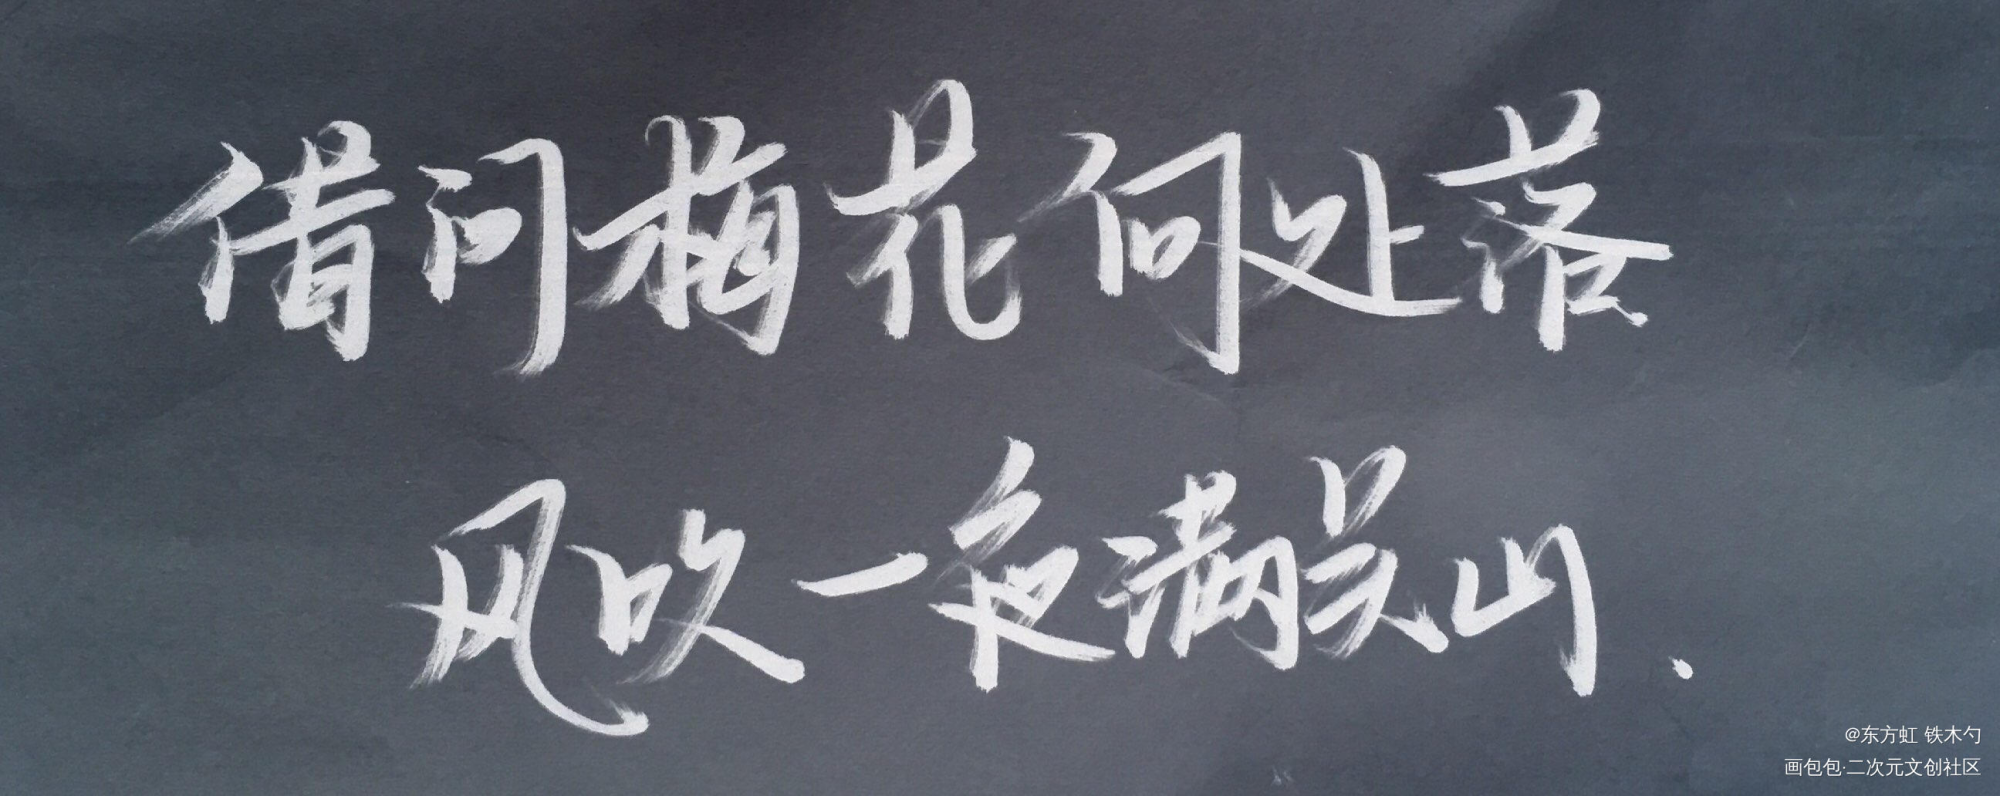 借问梅花何处落
风吹一夜满关山.
@东方虹 铁木勺
画包包·二次元文创社区